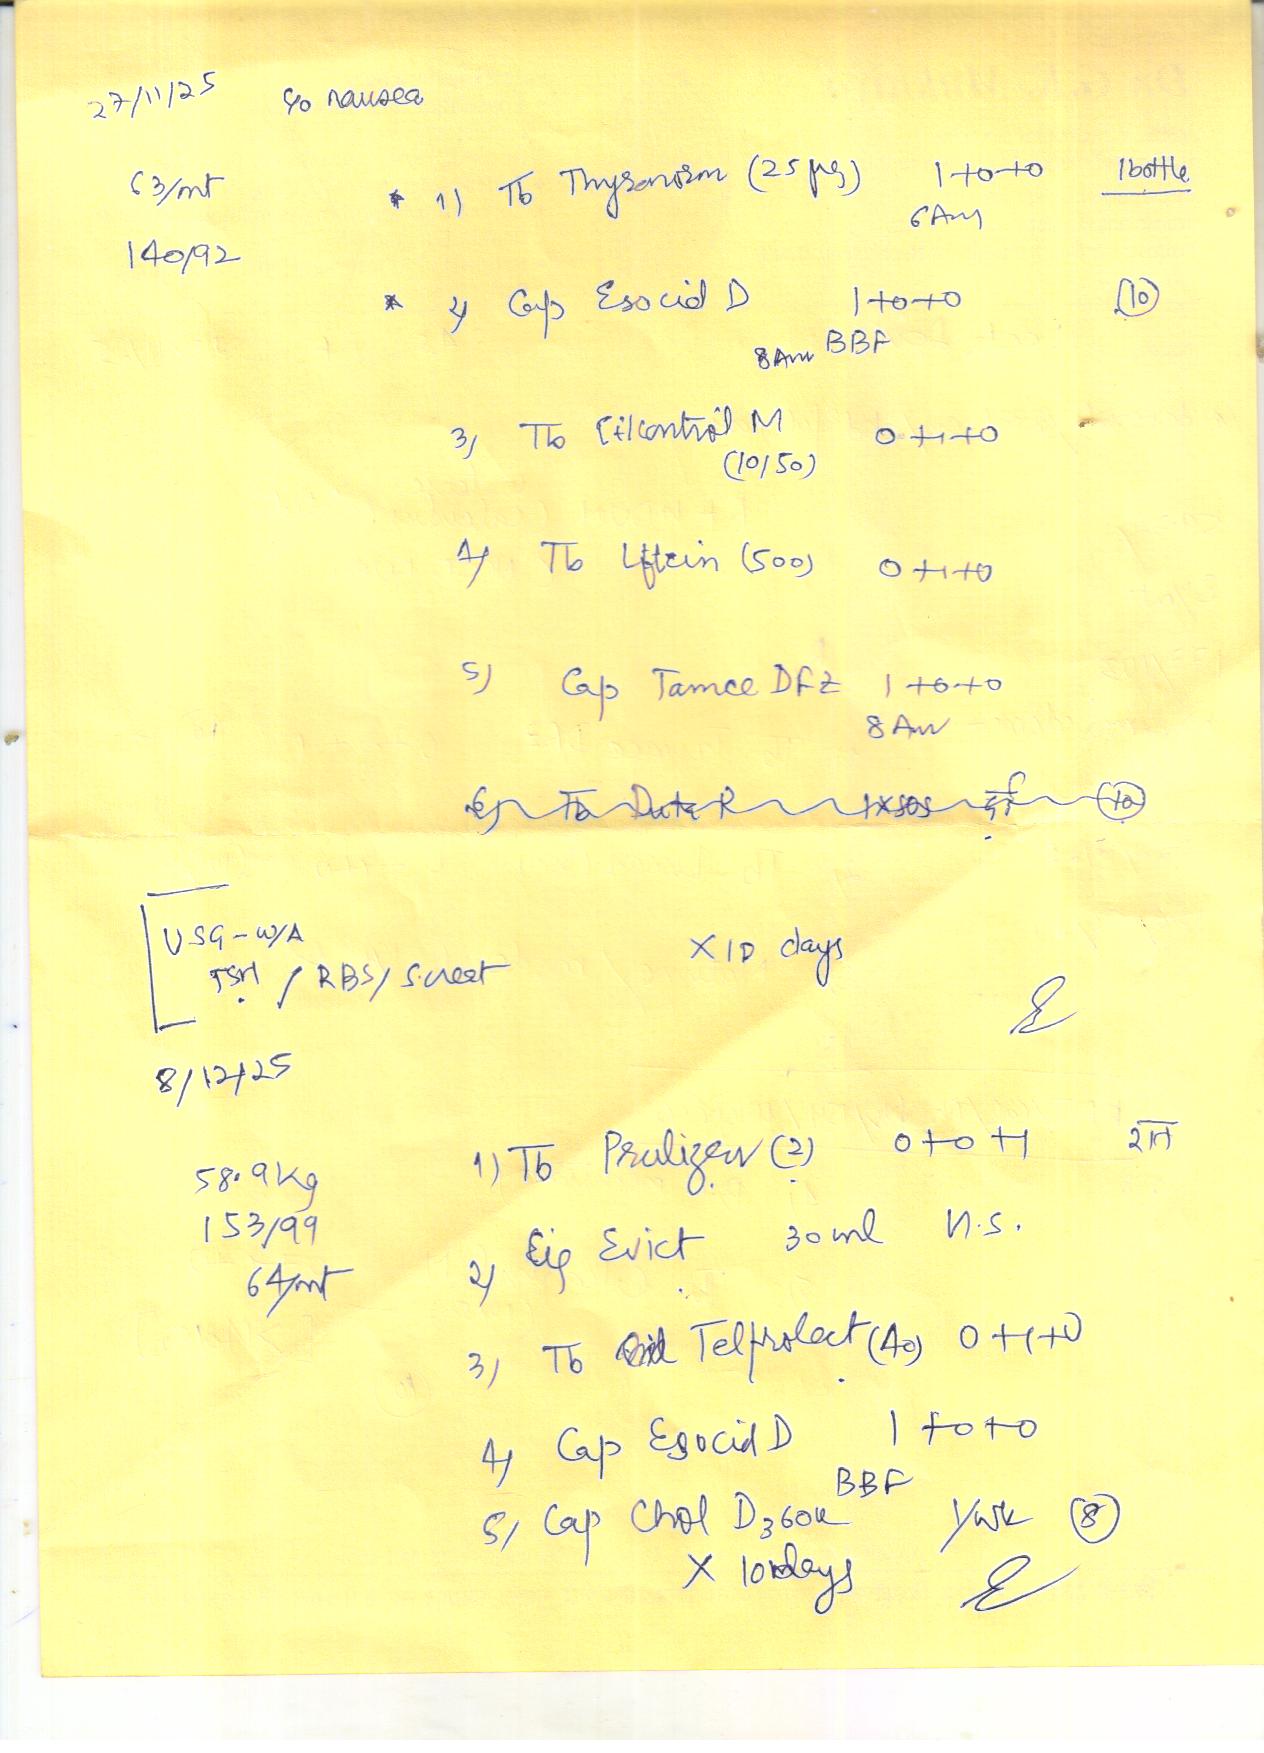 27/11/25 c/o nausea
63/mt * 1) Tb Thyronorm (25 µg) 1+0+0 1 bottle
6 Am
140/92
* 2) Cap Esocid D 1+0+0 (10)
8 Am BBF
3) Tb Cilcontrol M 0+1+0
(10/50)
4) Tb (500) 0+1+0
5) Cap DFZ 1+0+0
8 Am
6) Tb R 1 x SOS (10)
USG - W/A
TSH / RBS / S. creat
x 10 days
8/12/25
1) Tb (2) 0+0+1
58.9 kg
153/99 2) Evict 30 ml n.s.
64/mt
3) Tb Telprotect (40) 0+1+0
4) Cap Esocid D 1+0+0
BBF
5) Cap Chol D3 60k 1/wk (8)
x 10 days